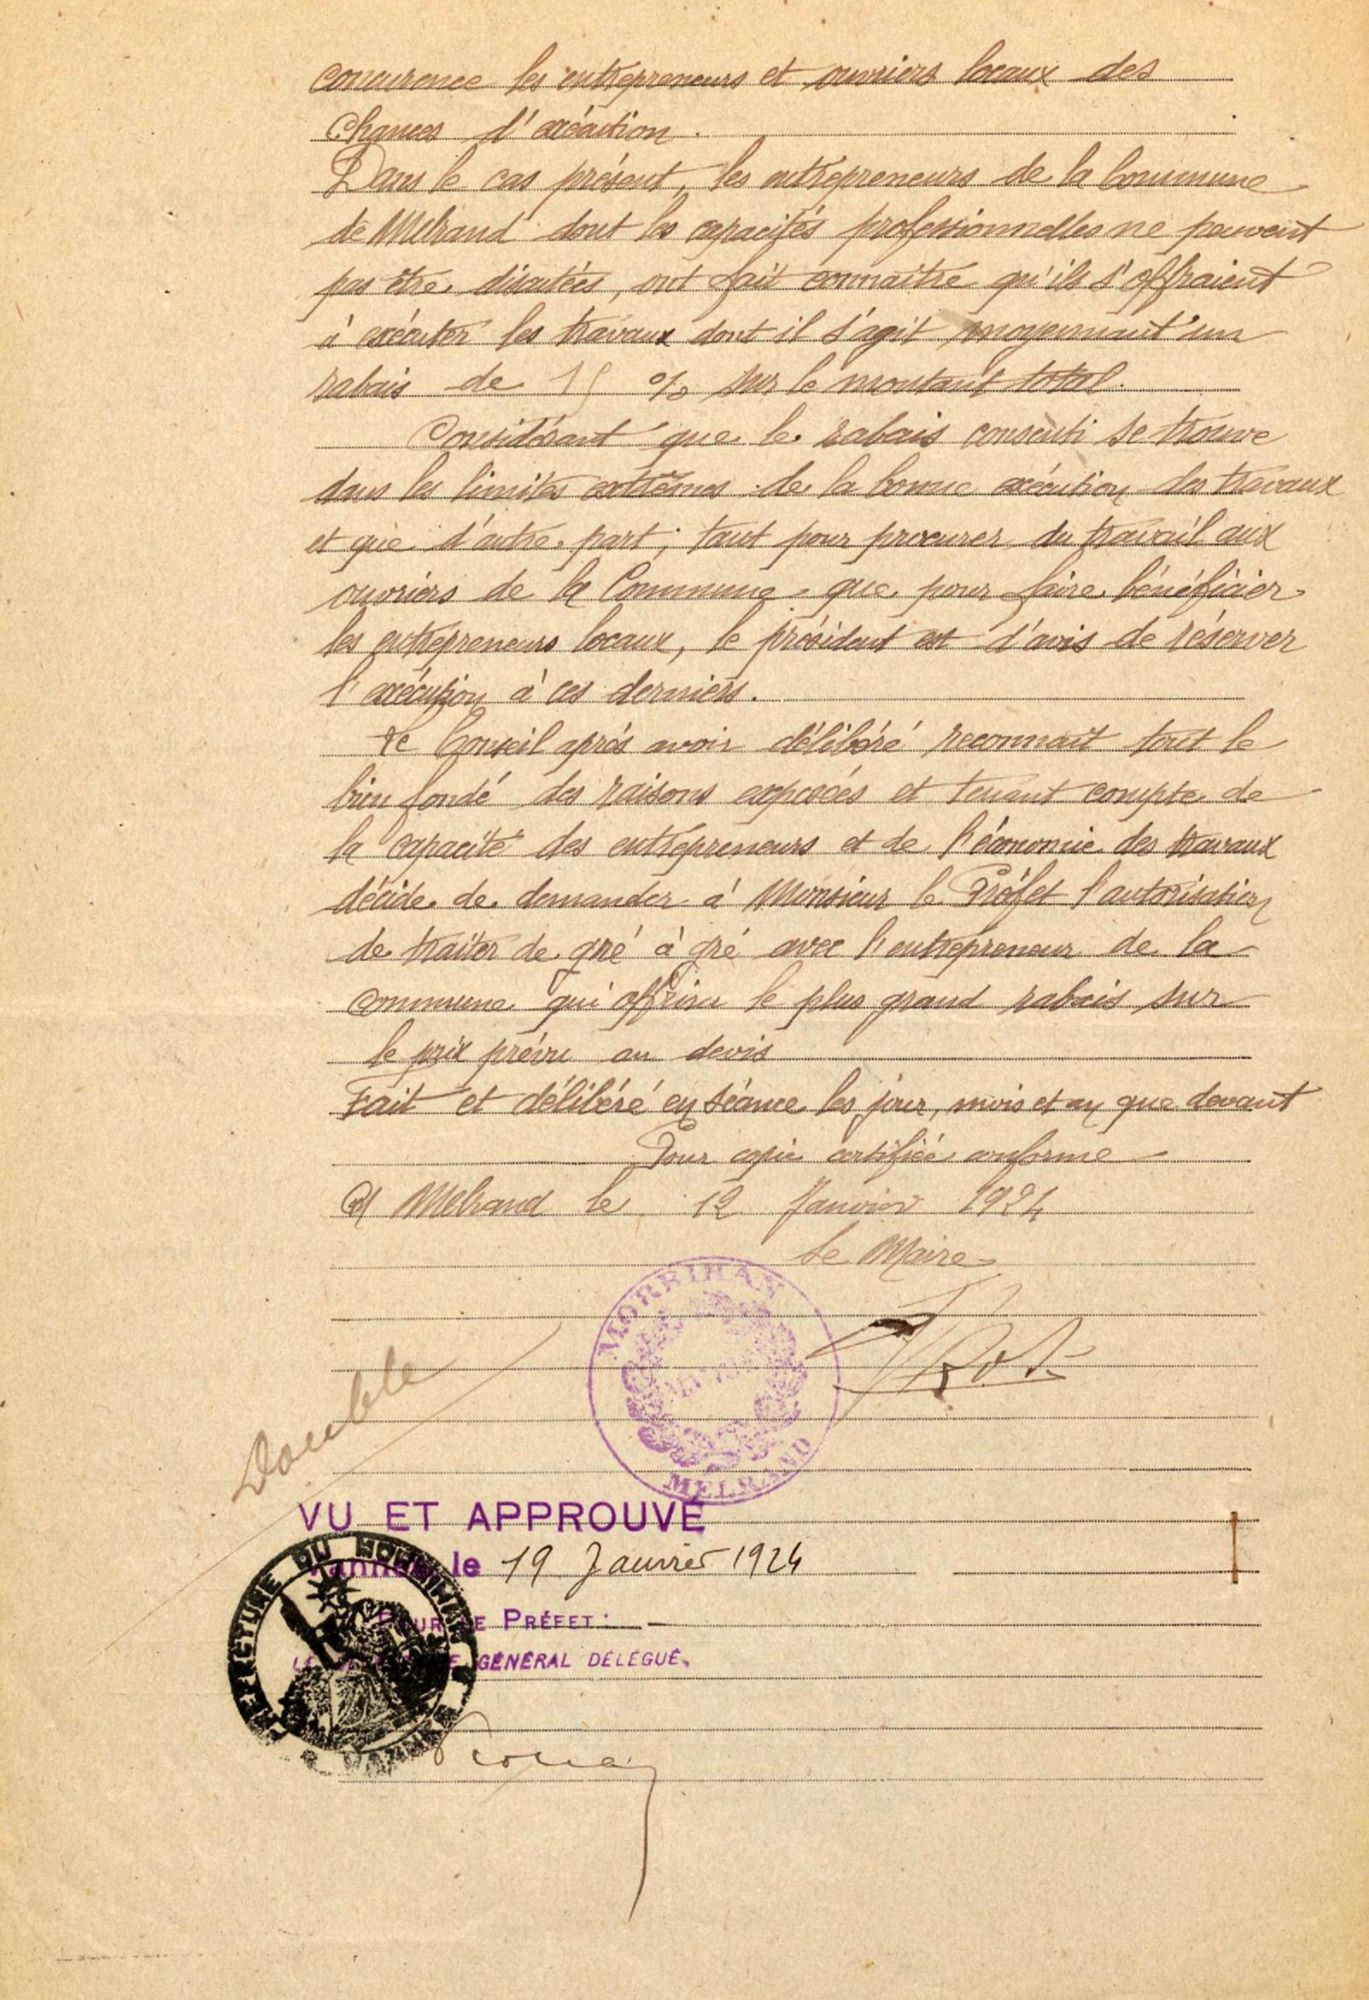 concurence les entrepreneurs et ouvriers locaux des
chances d'exécution.
Dans le cas présent, les entrepreneurs de la Commune
de Melrand dont les capacités professionnelles ne peuvent
pas être discutées, ont fait connaitre qu'ils s'offraient
à exécuter les travaux dont il s'agit moyennant un
rabais de 15 % sur le montant total.
Considérant que le rabais consenti se trouve
dans les limites extrêmes de la bonne exécution des travaux
et que d'autre part, tant pour procurer du travail aux
ouvriers de la Commune que pour faire bénéficier
les entrepreneurs locaux, le président est d'avis de réserver
l'exécution à ces derniers.
Le Conseil après avoir délibéré reconnait tout le
bien fondé des raisons exposées et tenant compte de
la capacité des entrepreneurs et de l'économie des travaux
décide de demander à Monsieur le Préfet l'autorisation
de traiter de gré à gré avec l'entrepreneur de la
commune qui offrira le plus grand rabais sur
le prix prévu au devis
Fait et délibéré en séance les jour, mois et an que devant
Pour copie certifiée conforme
A Melrand le 12 Janvier 1924
Le Maire
MORBIHAN
MELRAND
Double
VU ET APPROUVÉ
Vannes, le 19 Janvier 1924
POUR LE PRÉFET:
LE SECRÉTAIRE GÉNÉRAL DÉLÉGUÉ,
PREFECTURE DU MORBIHAN
VANNES